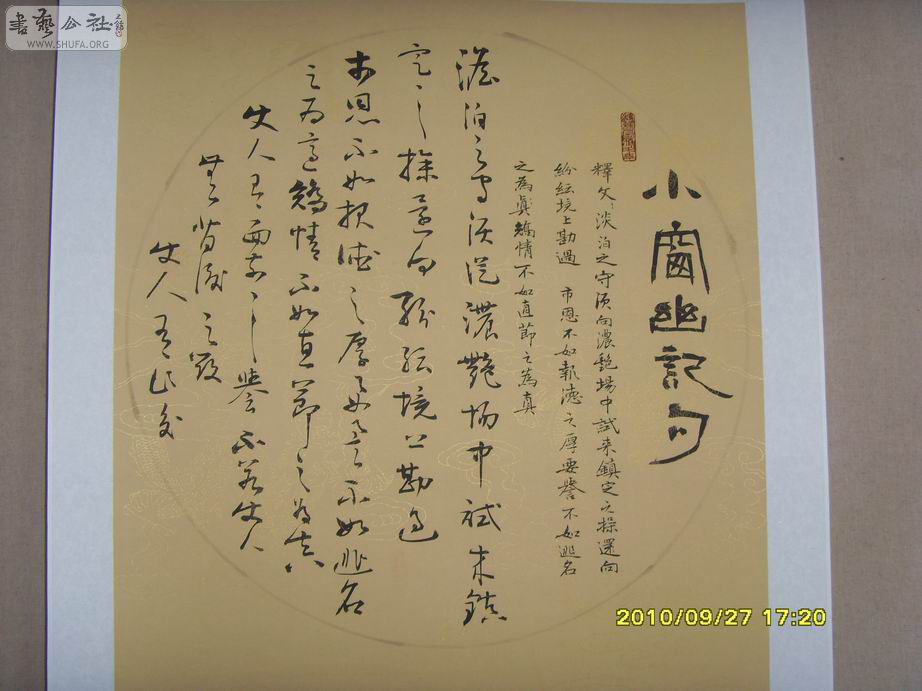 書藝公社
WWW.SHUFA.ORG
小窗幽記句
釋文：淡泊之守須向濃艷場中試來鎮定之操還向
紛紜境上勘過 市恩不如報德之厚要譽不如逃名
之為眞矯情不如直節之為真
澹泊之守須從濃艷場中試來鎮
定之操還向紛紜境上勘過
市恩不如報德之厚要譽不如逃名
之為適矯情不如直節之為真
使人有面前之譽不若使人
無背後之毀
使人有乍交
2010/09/27 17:20